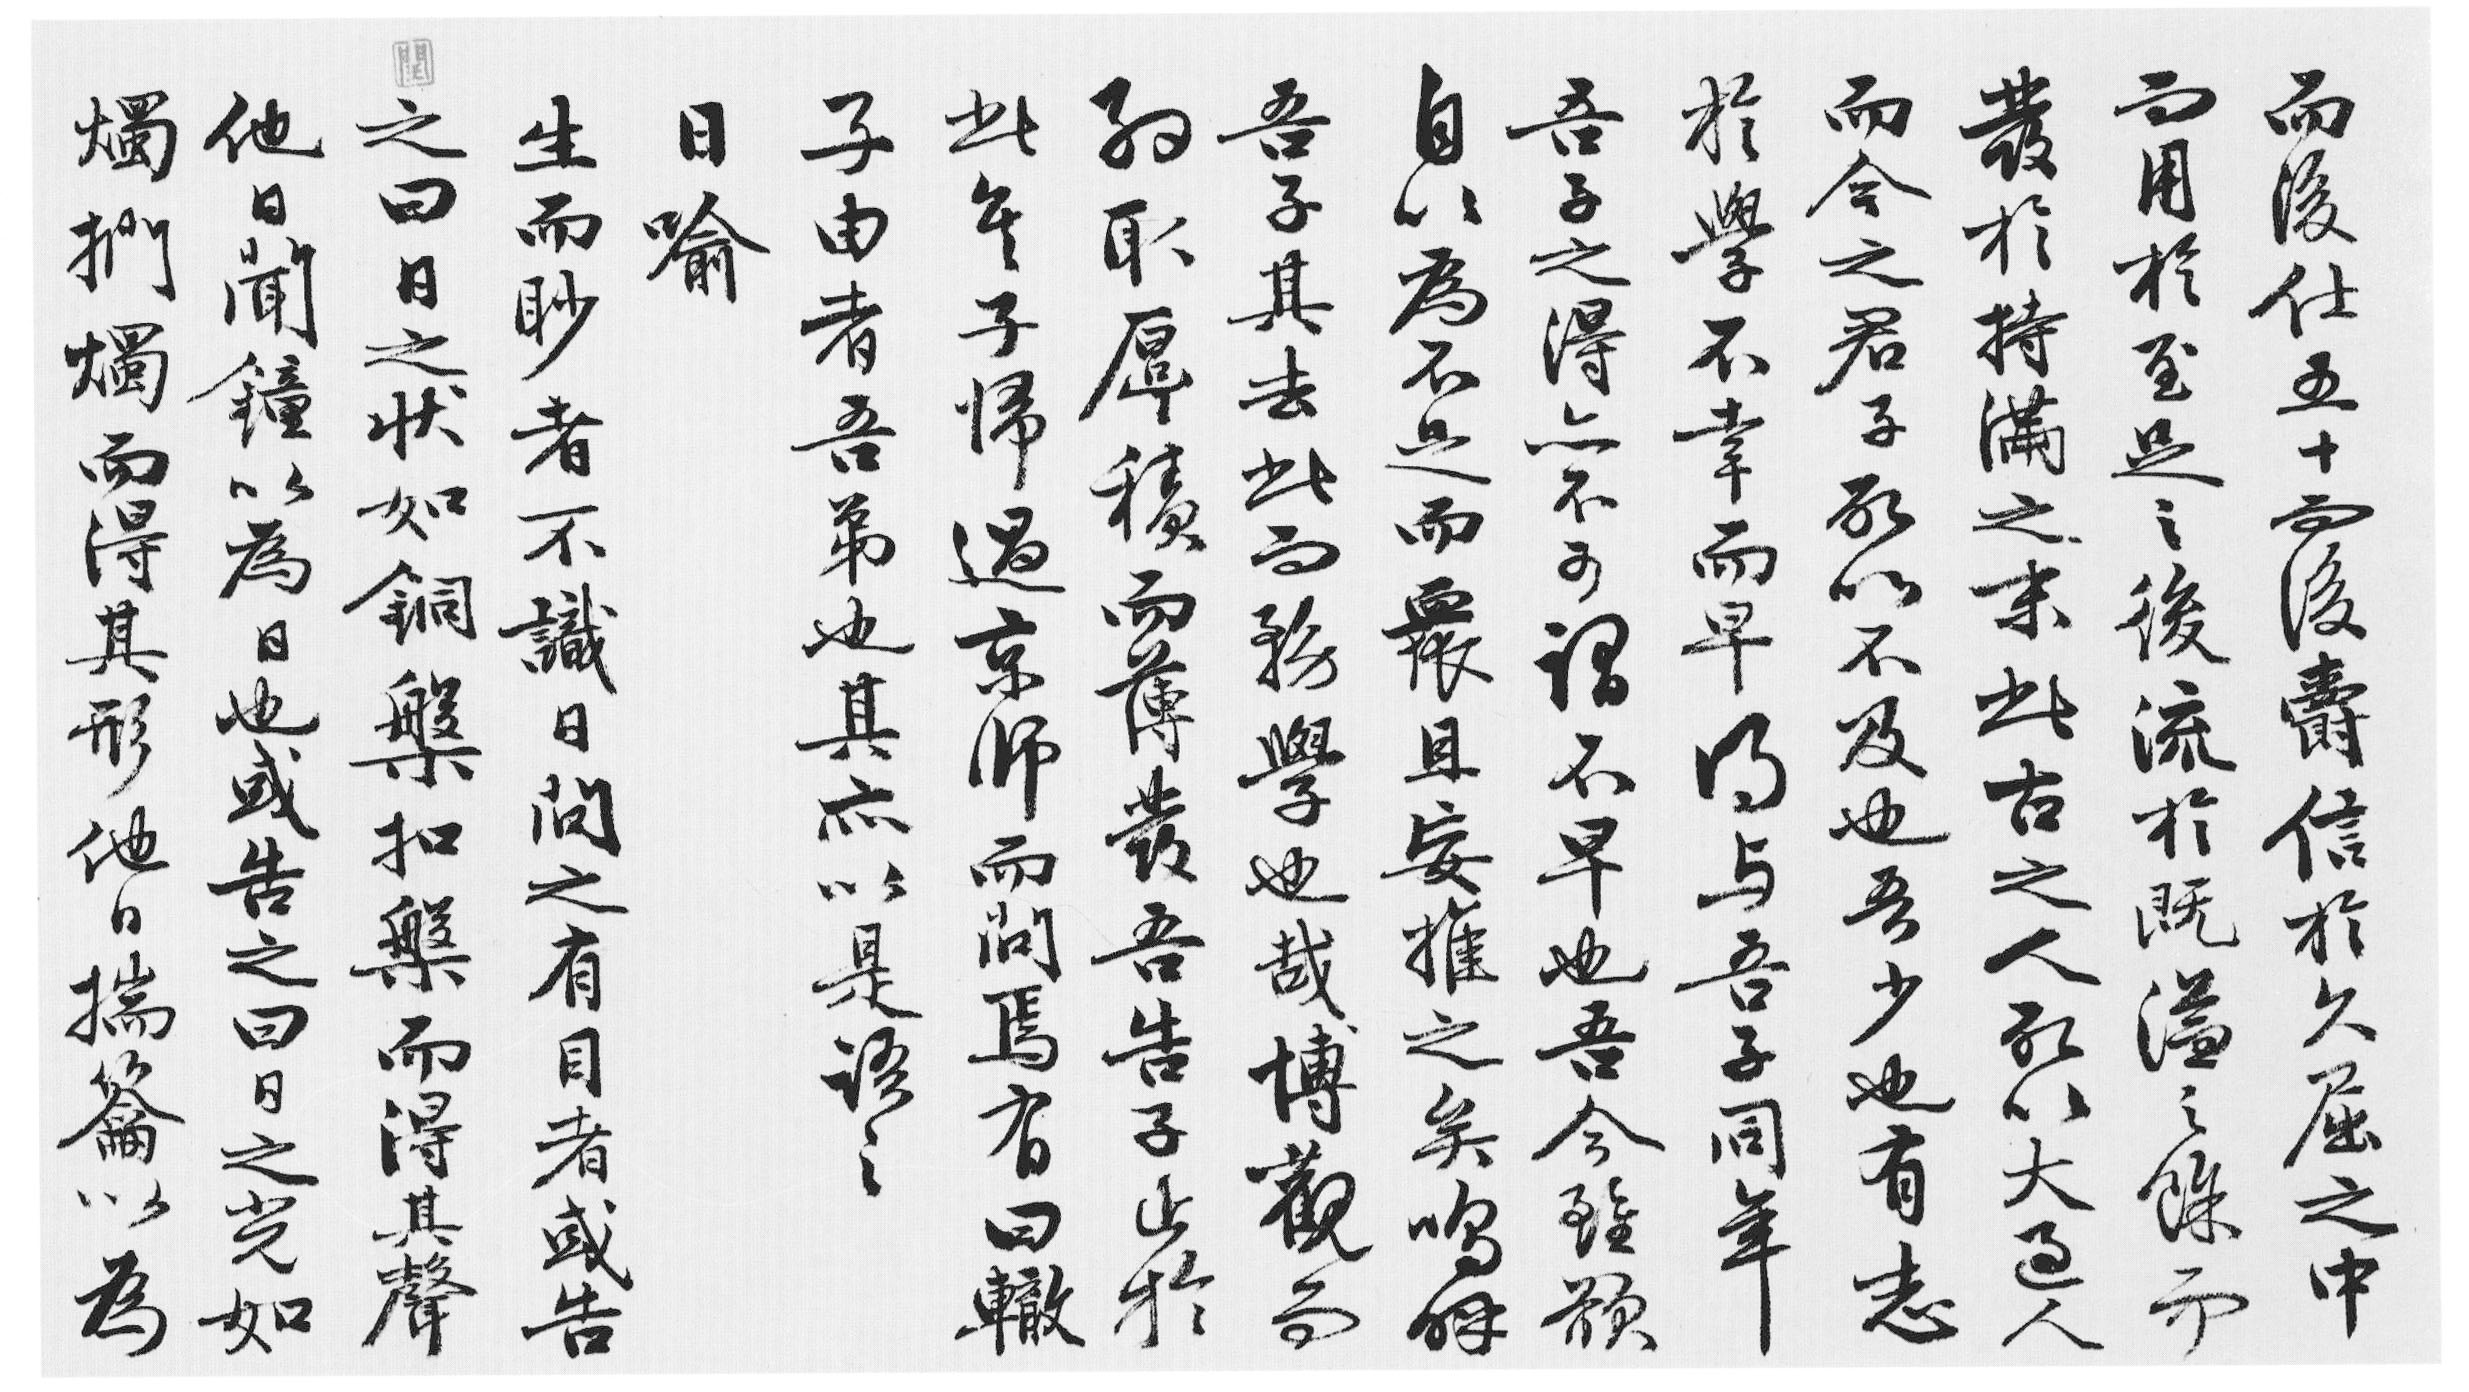 而後仕五十而後爵信於久屈之中
而用於至足之後流於既溢之餘而
發於持滿之末此古之人所以大過人
而今之君子所以不及也吾少也有志
於學不幸而早得与吾子同年
吾子之得亦不可謂不早也吾今雖欲
自以為不足而眾且妄推之矣嗚呼
吾子其去此而務學也哉博觀而
約取厚積而薄發吾告子止於
此矣子歸過京師而問焉有曰轍
子由者吾弟也其亦以是語之
日喻
生而眇者不識日問之有目者或告
之曰日之狀如銅槃扣槃而得其聲
他日聞鐘以為日也或告之曰日之光如
燭捫燭而得其形他日揣籥以為